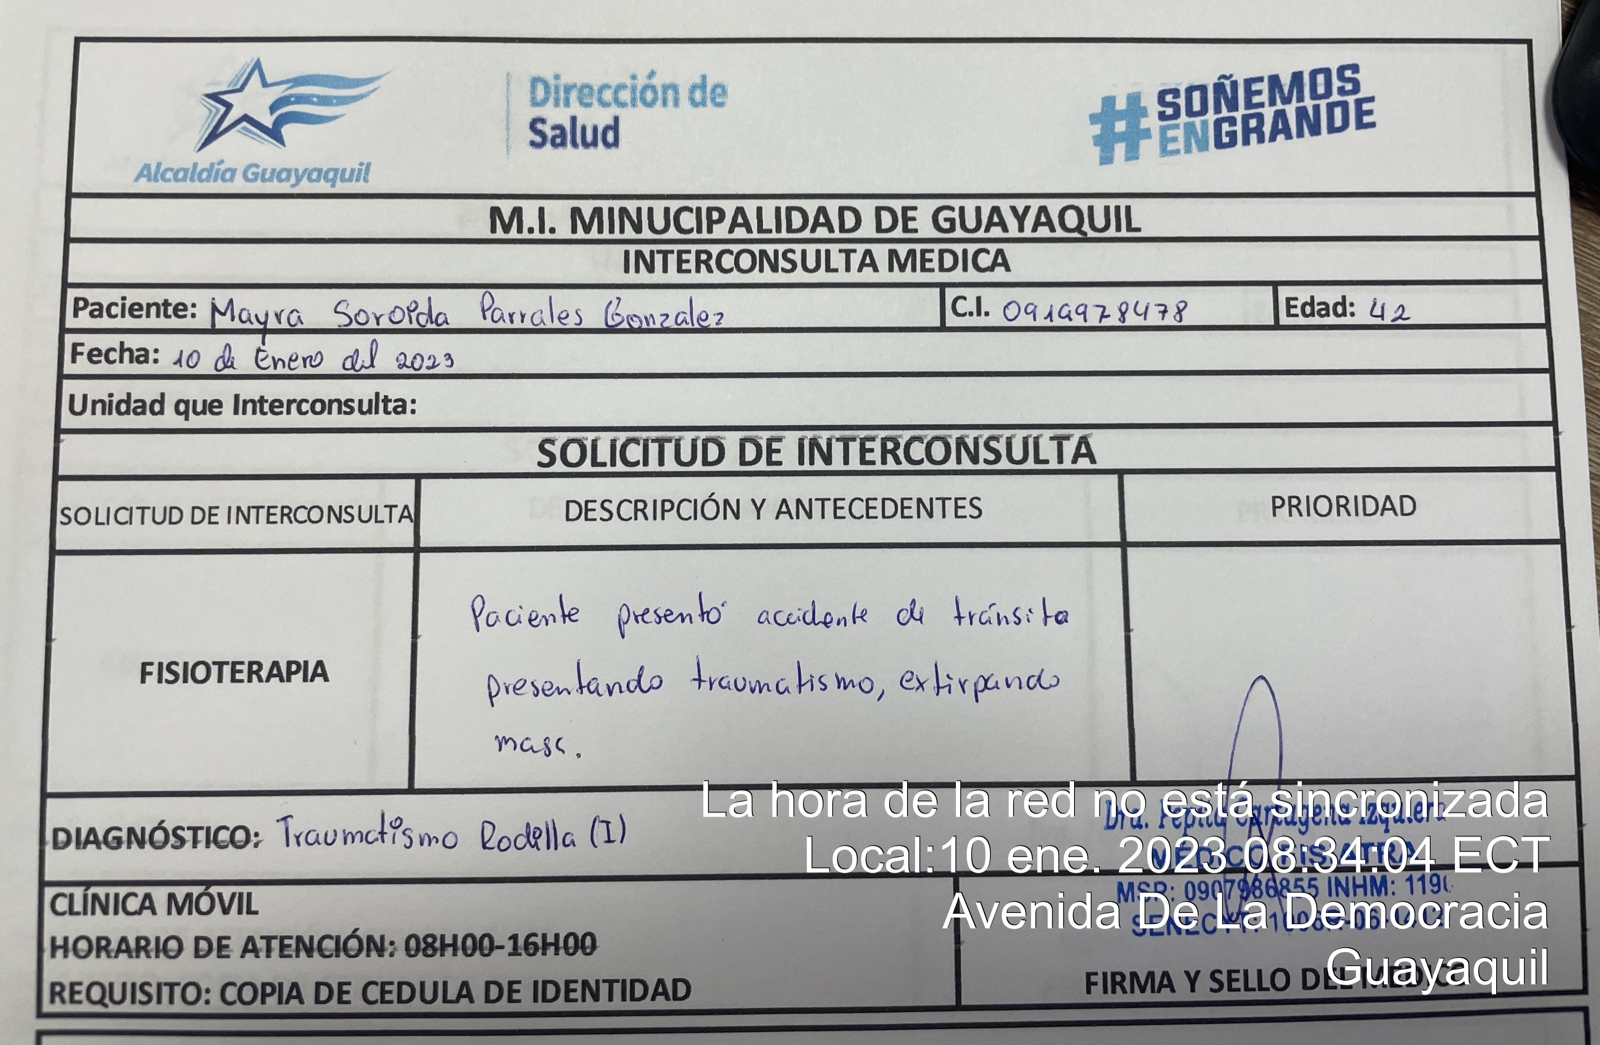 Alcaldía Guayaquil
Dirección de
Salud
#SOÑEMOS
ENGRANDE
M.I. MINUCIPALIDAD DE GUAYAQUIL
INTERCONSULTA MEDICA
Paciente: Mayra Soroida Parrales Gonzalez C.I. 0919978478 Edad: 42
Fecha: 10 de Enero del 2023
Unidad que Interconsulta:
SOLICITUD DE INTERCONSULTA
SOLICITUD DE INTERCONSULTA DESCRIPCIÓN Y ANTECEDENTES PRIORIDAD
Paciente presentó accidente de tránsito
FISIOTERAPIA
presentando traumatismo, extirpando
masc.
DIAGNÓSTICO: Traumatismo Rodilla (I)
Dra.
MÉDICO FISIATRA
MSP: 0907986855 INHM:
CLÍNICA MÓVIL
HORARIO DE ATENCIÓN: 08H00-16H00
REQUISITO: COPIA DE CEDULA DE IDENTIDAD
FIRMA Y SELLO DEL MEDICO
La hora de la red no está sincronizada
Local:10 ene. 2023 08:34:04 ECT
Avenida De La Democracia
Guayaquil